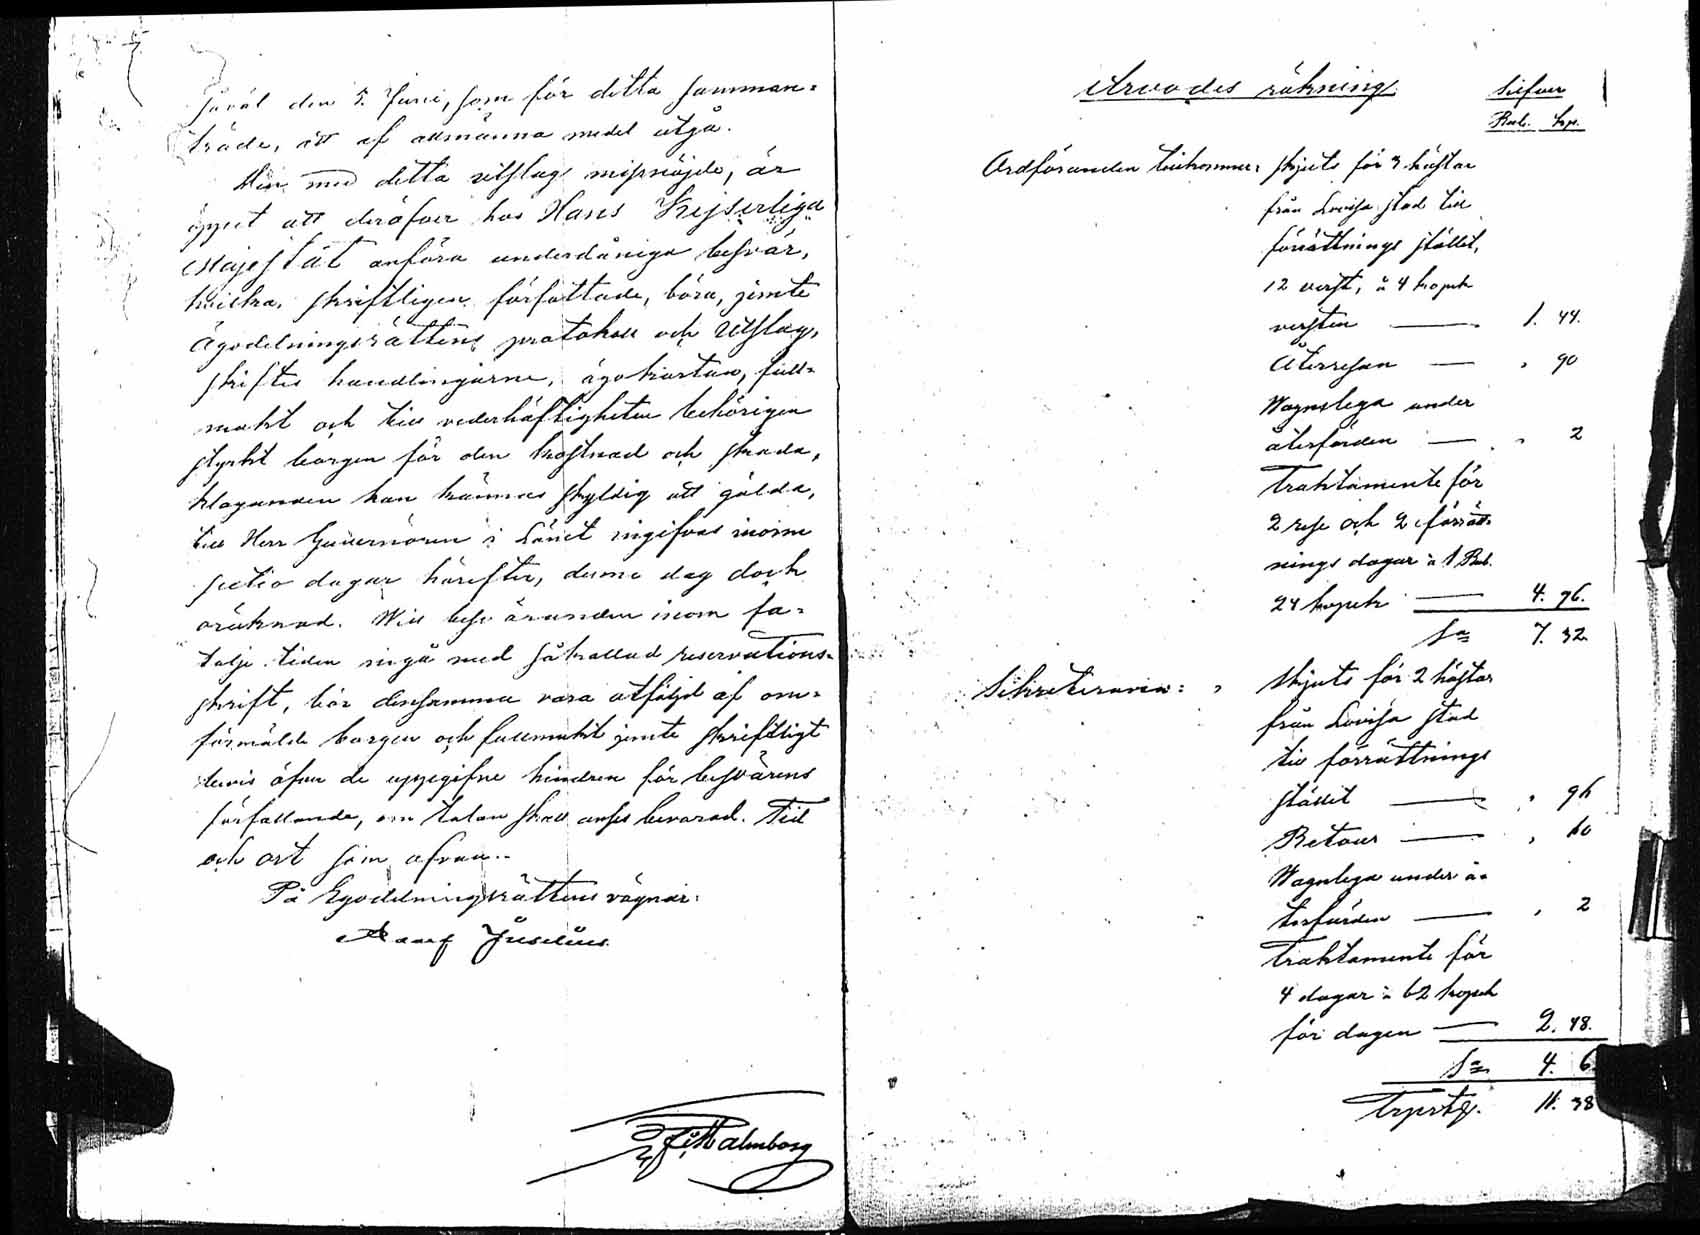 såväl den 5. Juni, som för detta samman-
träde, att af allmänna medel utgå.
Den med detta utslag missnöjde, är
öppet att deröfver hos Hans Kejserliga
Majestät anföra underdåniga besvär,
hvilka, skriftligen författade, böra, jemte
Ägodelningsrättens protokoll och Utslag,
skiftes handlingarne, ägokartan, full-
makt och till vederhäftigheten behörigen
styrkt borgen för den kostnad och skada,
klaganden kan kännas skyldig att gälda,
till Herr Guvernören i Länet ingifvas inom
sextio dagar härefter, denna dag dock
oräknad. Will besväranden inom fa-
talje tiden ingå med så kallad reservations-
skrift, bör densamma vara åtföljd af om-
förmälde borgen och fullmakt jemte skriftligt
bevis öfver de uppgifne hindren för besvärens
författande, om talan skall anses bevarad. Tid
och ort som ofvan..
På Egodelningsrättens vägnar:
Adolf Juselius.
Malmborg
Arvodes räkning.
Silfver
Rub. kop.
Ordföranden tillkommer: skjuts för 3 hästar
från Lovisa stad till
förrättnings stället,
12 verst, à 4 kopek
versten — 1. 44.
Återresan — " 90
Wagnslega under
återfärden — " 2
Traktamente för
2 rese och 2 förrätt-
nings dagar à 1 Rub.
24 kopek — 4. 96.
S:a 7. 32.
Sekreteraren: " Skjuts för 2 hästar
från Lovisa stad
till förrättnings
stället — " 96
Retour — " 60
Wagnslega under å-
terfärden — " 2
Traktamente för
4 dagar à 62 kopek
för dagen — 2. 48.
S:a 4. 6.
11. 38